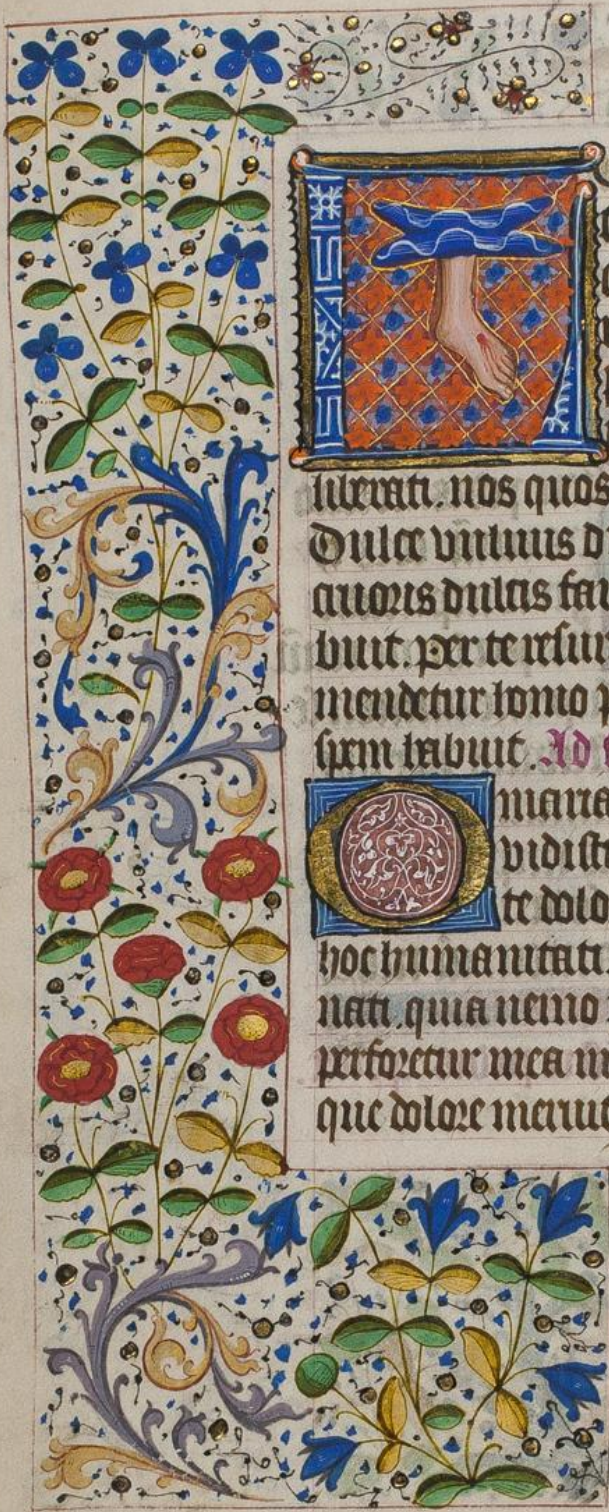 liberati. nos quos
Dulce vulnus d
cruoris dulcis
buit. per te resur
mendetur homo p
spem habuit. Ad
maria
vidisti
te dolo
hoc humanitati.
nati. quia nemo
perforetur mea m
que dolore meruit